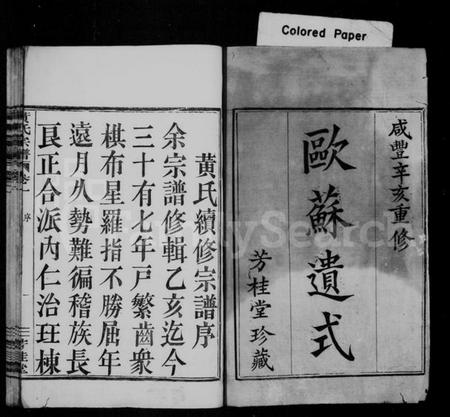 Colored Paper
咸豐辛亥重修
歐蘇遺式
芳桂堂珍藏
黃氏續修宗譜序
余宗譜修輯乙亥迄今
三十有七年戶繁齒衆
棋布星羅指不勝屈年
遠月久勢難徧稽族長
良正合派內仁治班棟
黃氏宗譜
卷一
序
FamilySearch